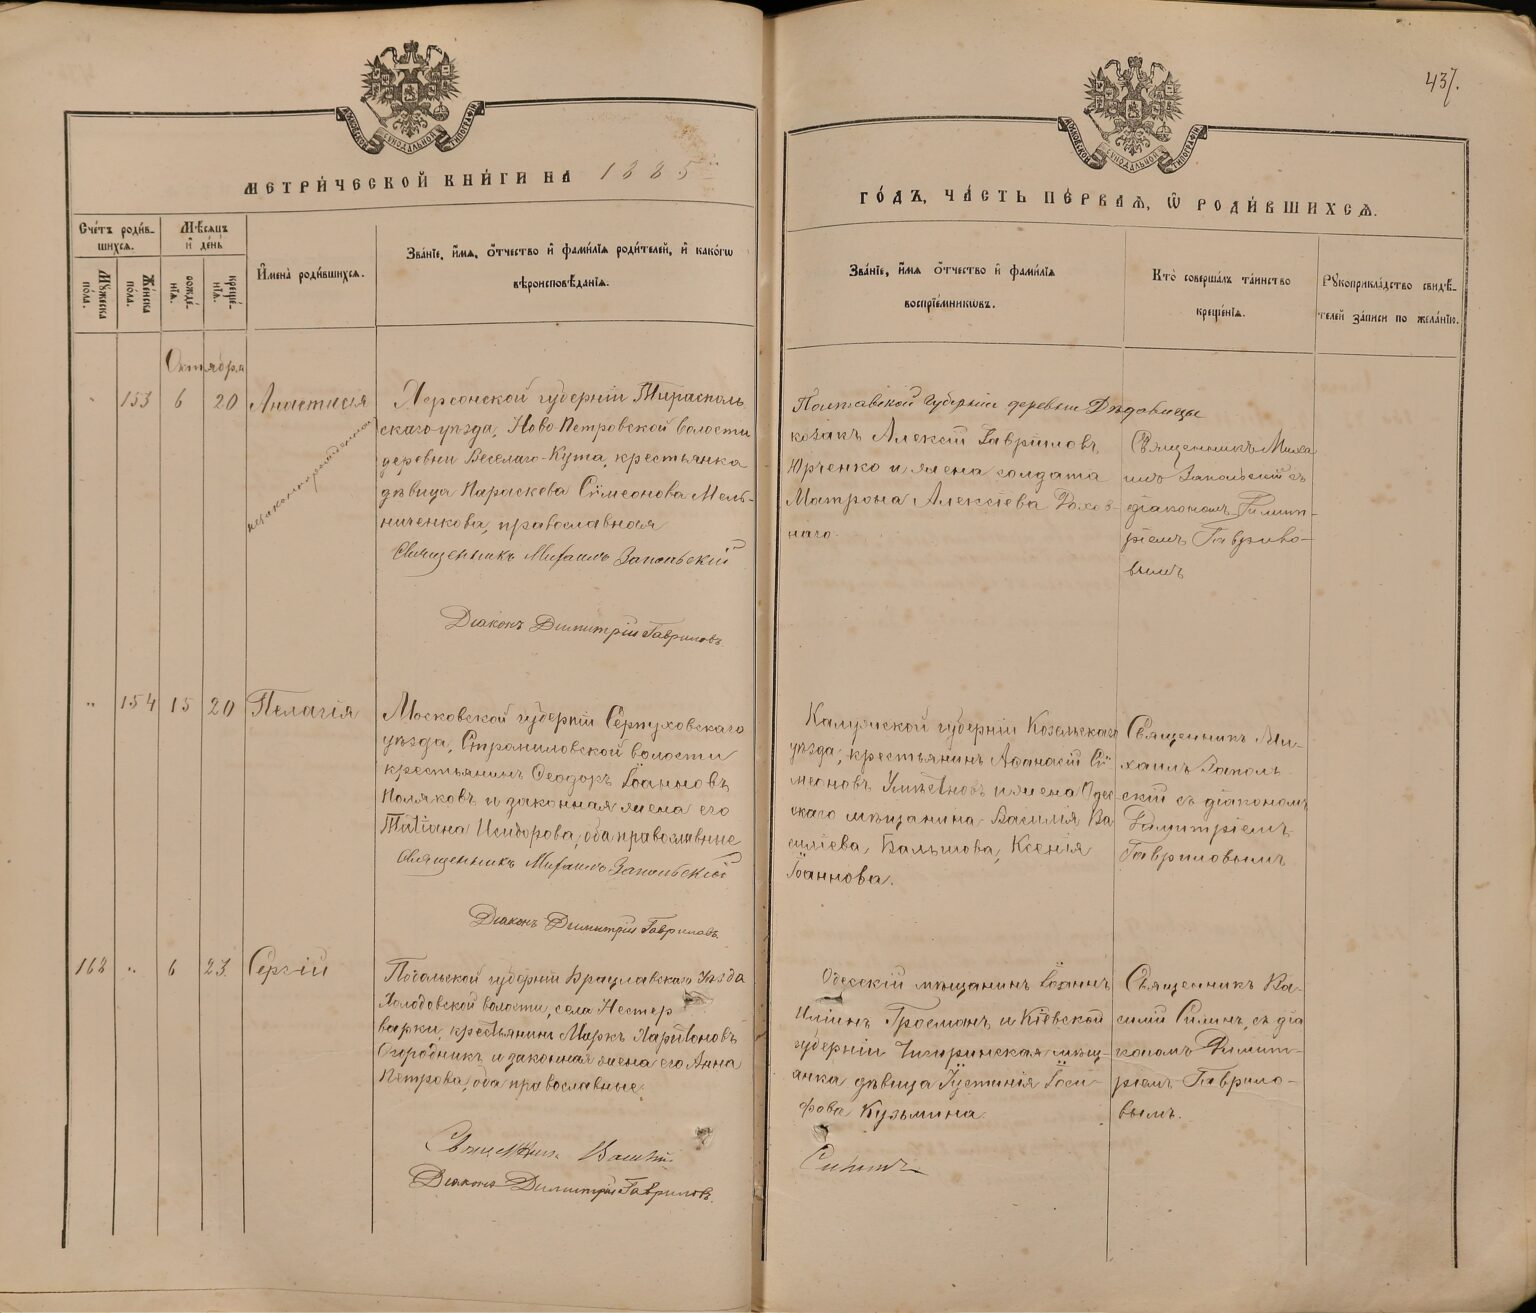 437.
МОСКОВСКОЙ СѴНОДАЛЬНОЙ ТИПОГРАФІИ
МОСКОВСКОЙ СѴНОДАЛЬНОЙ ТИПОГРАФІИ
МЕТРИ́ЧЕСКОЙ КНИ́ГИ НА 1885
ГО́ДЪ, ЧА́СТЬ ПЕ́РВАѦ, Ѡ РОДИ́ВШИХСѦ.
Сче́тъ роди́в-
шихсѧ.
Мѣ́сѧцъ
и҆ де́нь
Му́жеска
по́ла.
Же́нска
по́ла.
рожде́-
нїѧ.
креще́-
нїѧ.
И҆мена̀ роди́вшихсѧ.
Зва́нїе, и҆́мѧ, о҆́тчество и҆ фами́лїѧ роди́телей, и҆ како́гѡ
вѣроисповѣ́данїѧ.
Зва́нїе, и҆́мѧ о҆́тчество и҆ фами́лїѧ
воспрїе́мникѡвъ.
Кто̀ соверша́лъ та́инство
креще́нїѧ.
Рукоприкла́дство свидѣ́-
телей за́писи по жела́нїю.
Октября
" 153 6 20 Анастасія
незаконнорожденная
Херсонской губерніи Тирасполь
скаго уѣзда, Ново-Петровской волости
деревни Веселаго-Кута, крестьянка
дѣвица Параскева Сѵмеонова Мель-
ниченкова, православная
Священникъ Михаилъ Запольскій
Діаконъ Димитрій Гавриловъ
Полтавской губерніи деревни Дѣдовицы
козакъ Алексій Гавриловъ
Юрченко и жена солдата
Матрона Алексіева
Священникъ Миха
илъ Запольскій съ
діакономъ Димит-
ріемъ Гаврило-
вымъ
" 154 15 20 Пелагія
Московской губерніи Серпуховскаго
уѣзда, Стремиловской волости
крестьянинъ Ѳеодоръ Іоанновъ
Поляковъ и законная жена его
Татіана Исидорова, оба православные
Священникъ Михаилъ Запольскій
Діаконъ Димитрій Гавриловъ
Калужской губерніи Козельскаго
уѣзда, крестьянинъ Аѳанасій Сѵ
меоновъ и жена Одес
скаго мѣщанина Василія Ва
силіева, Ксенія
Іоаннова.
Священникъ Ми-
хаилъ Заполь
скій съ діакономъ
Димитріемъ
Гавриловымъ
168 " 6 23 Сергій
Подольской губерніи Брацлавскаго уѣзда
Холодовской волости, села Нестер
варки, крестьянинъ Маркъ Харитоновъ
Огородникъ и законная жена его Анна
Петрова, оба православные.
Священникъ Василій
Діаконъ Димитрій Гавриловъ
Одесскій мѣщанинъ Іоаннъ
Иліинъ Гросманъ и Кіевской
губерніи Чигиринская мѣщ-
анка дѣвица Іустинія Іоси-
фова Кузьмина
Силинъ
Священникъ Ва-
силій Силинъ съ діа
кономъ Димит-
ріемъ Гаврило-
вымъ.